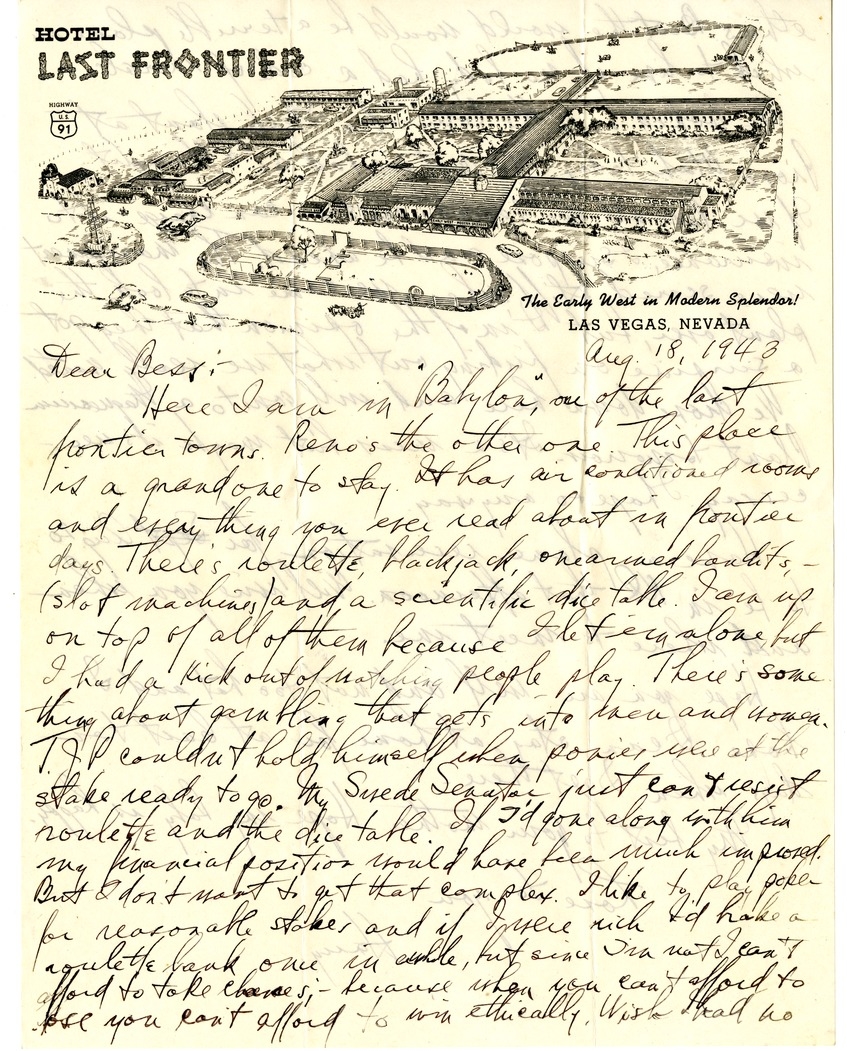 HOTEL
LAST FRONTIER
HIGHWAY
U.S.
91
The Early West in Modern Splendor!
LAS VEGAS, NEVADA
Aug. 18, 1943
Dear Bess:-
Here I am in "Babylon", one of the last
frontier towns. Reno's the other one. This place
is a grand one to stay. It has air conditioned rooms
and everything you ever read about in frontier
days. There's roulette, blackjack, onearmed bandits, -
(slot machines) and a scientific dice table. I am up
on top of all of them because I let em alone, but
I had a kick out of watching people play. There's some
thing about gambling that gets into men and women.
T.J.P couldn't hold himself when ponies were at the
stake ready to go. My Swede Senator just can't resist
roulette and the dice table. If I'd gone along with him
my financial position would have been much improved.
But I don't want to get that complex. I like to play poker
for reasonable stakes and if I were rich I'd brake a
roulette bank once in awhile, but since I'm not I can't
afford to take chances;- because when you can't afford to
lose you can't afford to win ethically. Wish I had no